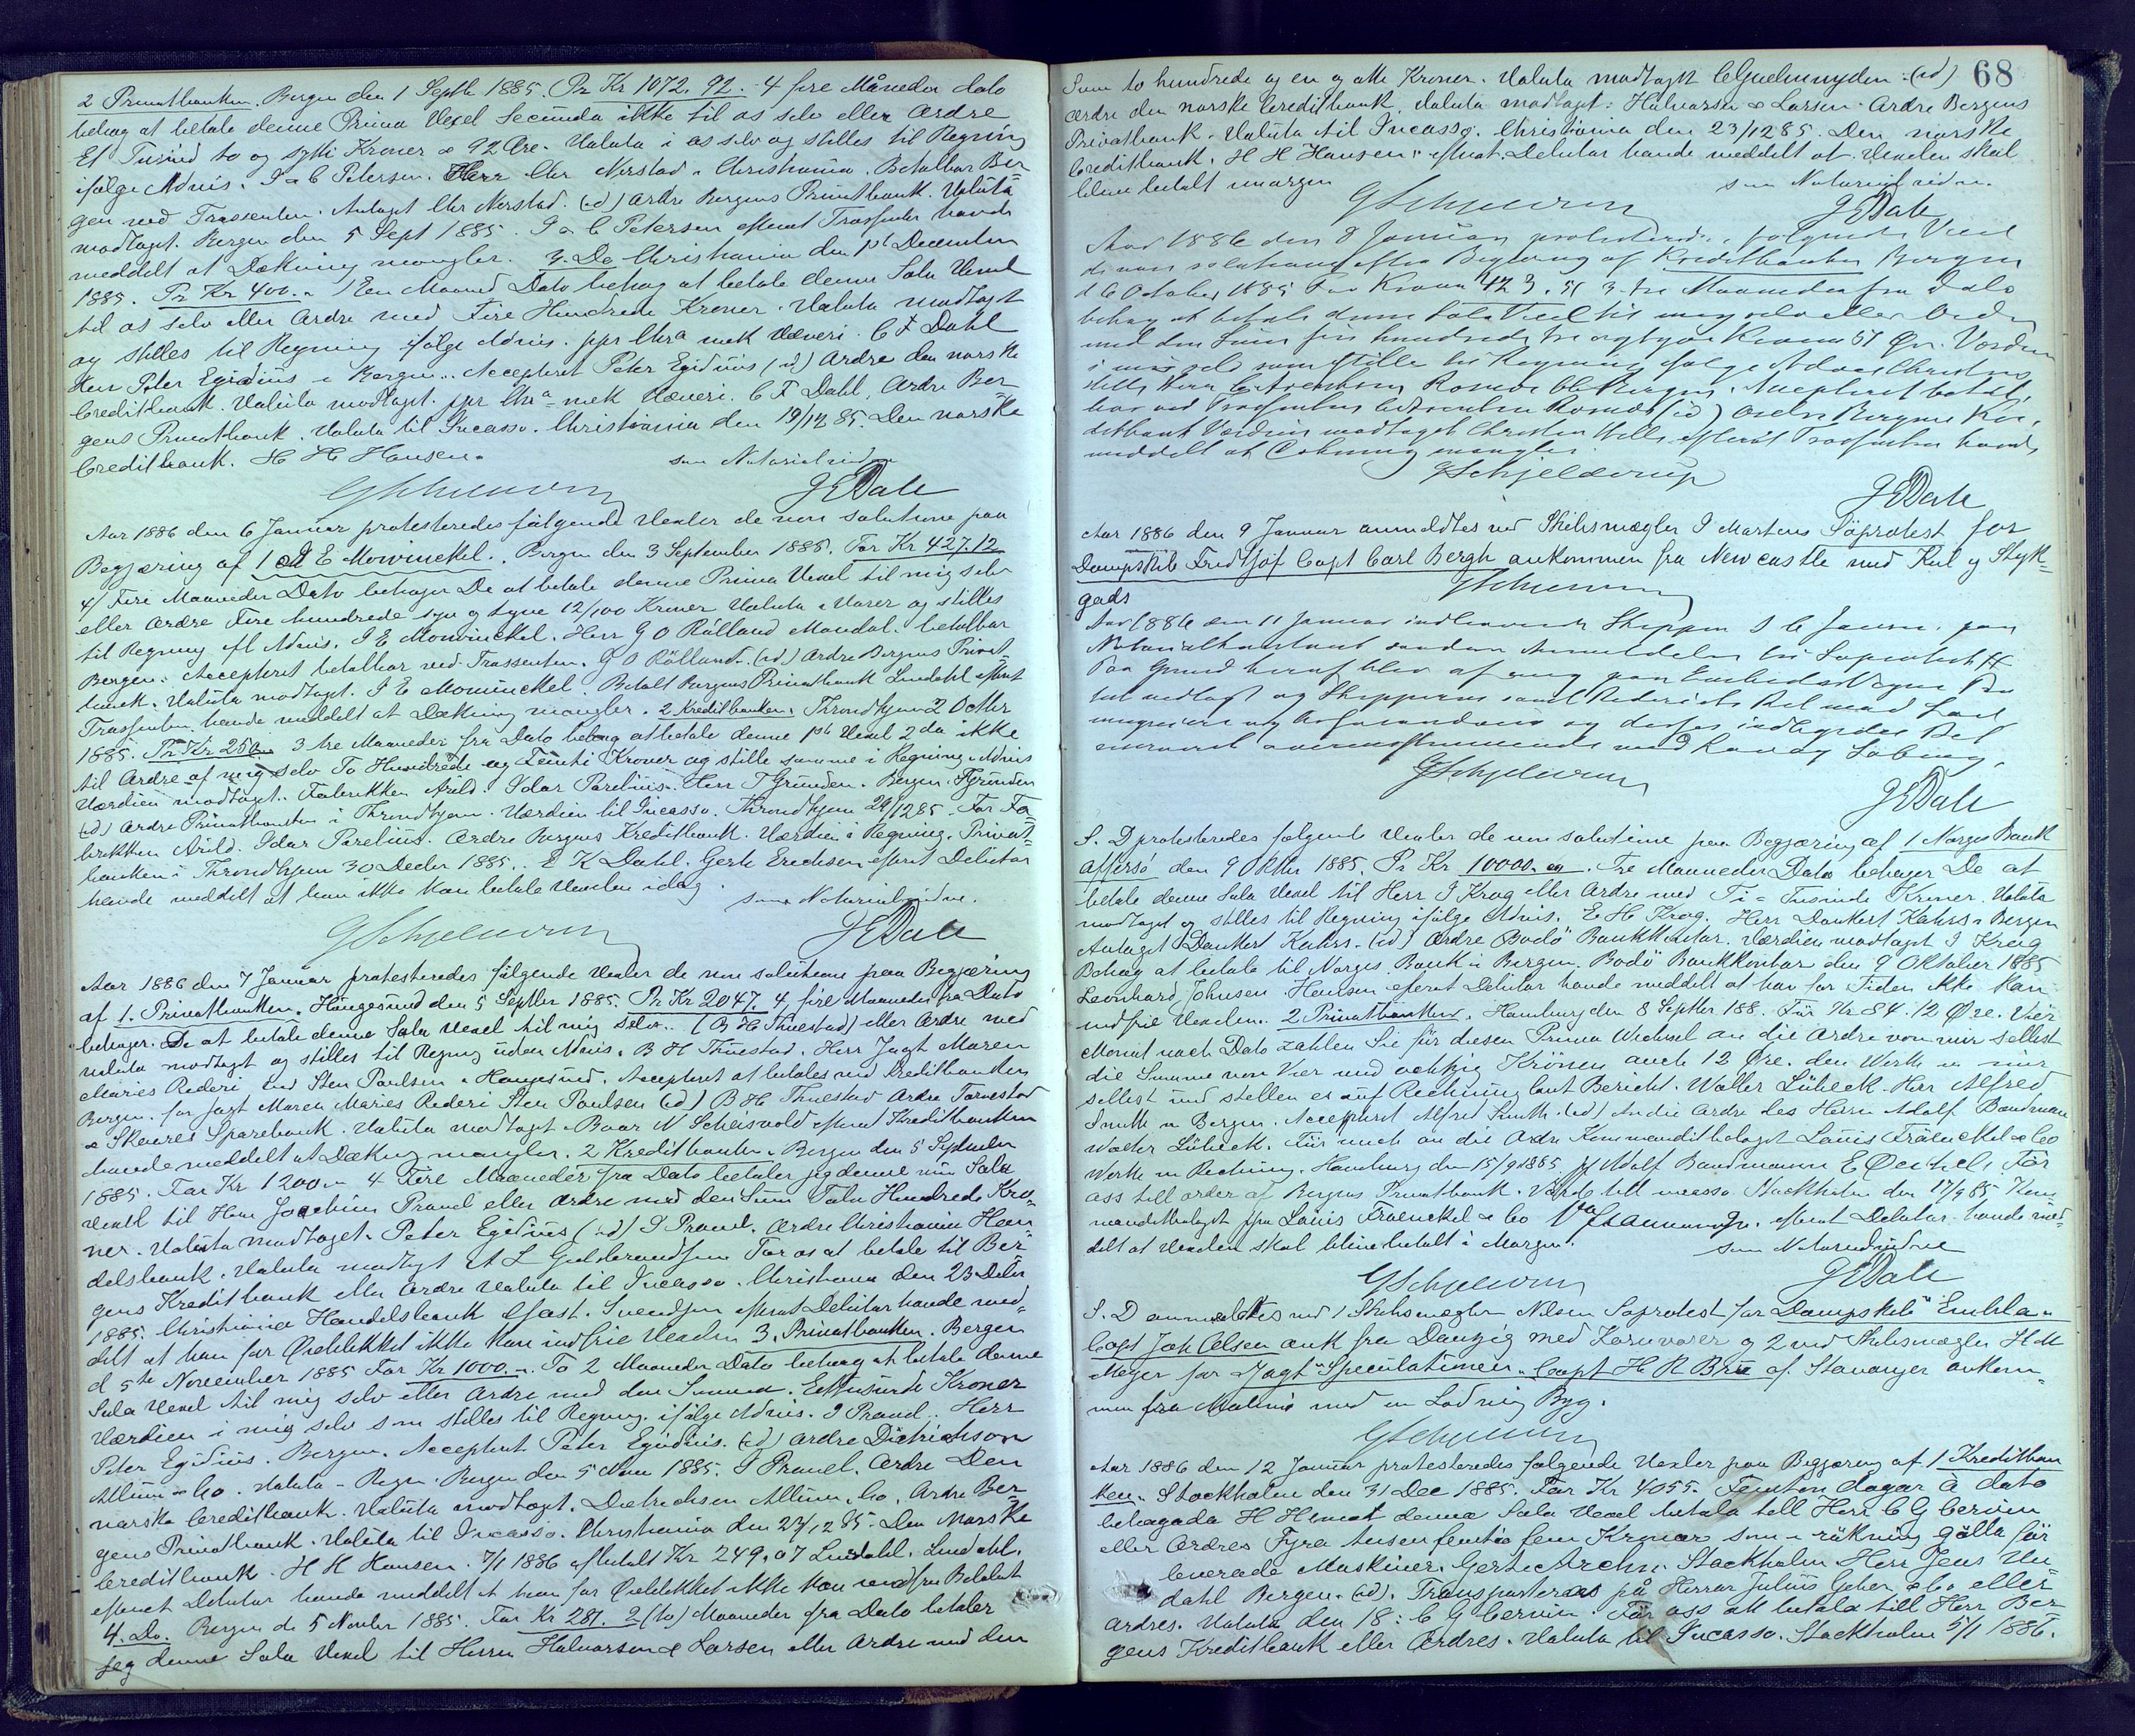 2 Privatbanken. Bergen den 1 Septb 1885. Pr Kr 1072. 92. 4 fire Måneder dato
behag at betale denne Prima Vexel Secunda ikke til os selv eller Ordre
Et Tusind to og sytti Kroner & 92 Øre. Valuta i os selv og stilles til Regning
ifølge Advis. I & C Petersen. Herr Chr Nerstad i Christiania. Betalbar Ber-
gen ved Trassenten. Antaget Chr Nerstad. (id) Ordre Bergens Privatbank. Valuta
modtaget. Bergen den 5 Sept 1885. I & C Petersen efterat Trassenten havde
meddelt at Dækning mangler. 3. Do Christiania den 1st December
1885. Pr Kr 400.- 1 Een Maaned Dato behag at betale denne Sola Vexel
til os selv eller Ordre med Fire Hundrede Kroner. Valuta modtaget
og stilles til Regning ifølge Advis. ppr Chra mek Væveri. C F Dahl
Herr Peter Egidius i Bergen. Accepteret Peter Egidius (id) Ordre den norske
Creditbank. Valuta modtaget. ppr Chra mek Væveri. C F Dahl, Ordre Ber-
gens Privatbank. Valuta til Incasso. Christiania den 19/12 85. Den norske
Creditbank. H H Hansen.
som Notarialvidne
GSchjelderup JEDale
Aar 1886 den 6 Januar protesteredes følgende Vexler de non solutione paa
Begjæring af 1 I E Mowinckel. Bergen den 3 September 1885. For Kr 427.12
4/ Fire Maaneder Dato behager De at betale denne Prima Vexel til mig selv
eller Ordre Fire hundrede syv og tyve 12/100 Kroner Valuta i Varer og stilles
til Regning efl Advis. I E Mowinckel. Herr G O Rölland Mandal. betalbar
Bergen. Accepteret betalbar ved Trassenten. G O Rölland. (id) Ordre Bergens Privat-
bank. Valuta modtaget. I E Mowinckel. Betalt Bergens Privatbank Lindahl efterat
Trassenten havde meddelt at Dækning mangler. 2 Kreditbanken. Throndhjem 2 Octbr
1885. Pr Kr 250. 3 tre Maaneder fra Dato behag at betale denne 1st Vexel 2da ikke
til Ordre af mig selv To Hundrede og Femti Kroner og stille samme i Regning Advis
Værdien modtaget. Fabrikken Arild. Idar Parelius. Herr T Gründen. Bergen. TGründen
(id) Ordre Privatbanken i Throndhjem. Værdien til Incasso. Throndhjem 29/12 85. For Fa-
brikken Arild. Idar Parelius. Ordre Bergens Kreditbank. Værdien i Regning. Privat-
banken i Throndhjem 30 Decbr 1885. E K Dahl. Gerh Erichsen efterat Debitor
havde meddelt at han ikke kan betale Vexelen idag.
som Notarialvidne.
GSchjelderup JEDale
Aar 1886 den 7 Januar protesteredes følgende Vexler de non solutione paa Begjæring
af 1. Privatbanken. Haugesund den 5 Septbr 1885. Pr Kr 2047. 4 fire Maaneder fra Dato
behager De at betale denne Sola Vexel til mig selv. (B H Thuestad) eller Ordre med
valuta modtaget og stilles til Regning uden Advis. B H Thuestad. Herr Jagt Maren
Maries Rederi ved Sten Poulsen i Haugesund. Accepteret at betales ved Kreditbanken
Bergen. for Jagt Maren Maries Rederi Sten Poulsen (id) B H Thuestad Ordre Torvestad
& Skaares Sparebank. Valuta modtaget Baar N Scheisvold efterat Kreditbanken
havde meddelt at Dækning mangler. 2 Kreditbanken. Bergen den 5 September
1885. For Kr 1200.- 4 Fire Maaneder fra Dato betaler jeg denne min Sola
Vexel til Herr Joachim Pravel eller Ordre med den Sum Tolv Hundrede Kro-
ner. Valuta modtaget. Peter Egidius (id) I Pravel. Ordre Christiania Han-
delsbank. Valuta modtagt A L Guldbrandsen For os at betale til Ber-
gens Kreditbank eller Ordre Valuta til Incasso. Christiania den 23 Decbr
1885. Christiania Handelsbank Efast. Svendsen efterat Debitor havde med-
delt at han for Øieblikket ikke kan indfrie Vexelen 3. Privatbanken. Bergen
d 5te November 1885 For Kr 1000.-. To 2 Maaneder Dato behag at betale denne
Sola Vexel til mig selv eller Ordre med den Summa. Ettusinde Kroner
Værdien i mig selv som stilles til Regning ifølge Advis. I Pravel. Herr
Peter Egidius. Bergen. Accepteret Peter Egidius. (id) Ordre Dietrichson
Allum & Co. Valuta i Regn. Bergen den 5 Novr 1885. I Pravel. Ordre Den
norske Creditbank. Valuta modtaget. Dietrichson Allum & Co. Ordre Ber-
gens Privatbank. Valuta til Incasso. Christiania den 23/12 85. Den Norske
Creditbank. H H Hansen. 7/1 1886 afbetalt Kr 249.07 Lindahl. Lindahl.
efterat Debitor havde meddelt at han for Øieblikket ikke kan indfri Beløbet
4. Do. Bergen de 5 Novbr 1885. For Kr 281. 2 (to) Maaneder fra Dato betaler
jeg denne Sola Vexel til Herrer Halvorsen & Larsen eller Ordre med den
68
Sum to hundrede og en og otte Kroner. Valuta modtaget (id)
Ordre den norske Creditbank. Valuta modtaget: Halvorsen & Larsen. Ordre Bergens
Privatbank. Valuta til Incasso. Christiania den 23/12 85. Den norske
Creditbank. H H Hansen. efterat Debitor havde meddelt at Vexelen skal
blive betalt imorgen
som Notarialvidne.
GSchjelderup JEDale
Aar 1886 den 8 Januar protesteredes følgende Vexel
de non solutione efter Begjæring af Kreditbanken Bergen
d 6 October 1885 For Kroner 423.51 3 tre Maaneder fra Dato
behag at betale denne Sola Vexel til mig selv eller Ordre
med den Sum fire hundrede tre og tyve Kroner 51 Øre. Værdien
i mig selv som stilles til Regning ifølge Advis Christen
Accepteret betal-
bar ved Trassenten (id) Ordre Bergens Kre-
ditbank Værdien modtaget Christen efterat Trassenten havde
meddelt at Dækning mangler
GSchjelderup
JEDale
Aar 1886 den 9 Januar anmeldtes ved Skibsmægler I Martens Søprotest for
Dampskib Fredtjof Capt Carl Bergh ankommen fra Newcastle med Kul og Styk-
gods
GSchjelderup
Aar 1886 den 11 Januar indleverede Skipper I C paa
Notarialkontoret saadan Anmeldelse til Søprotest
Paa Grund heraf blev af mig paa Embedsvegne
og Skipperen samt Rederiets Ret mod
og og derfor
overensstemmende med Lov og
GSchjelderup
JEDale
S. D protesteredes følgende Vexler de non solutione paa Begjæring af 1 Norges Bank
den 9 Oktbr 1885. Pr Kr 10000.00. Tre Maaneder Dato behager De at
betale denne Sola Vexel til Herr I Krog eller Ordre med Ti - Tusinde Kroner. Valuta
modtaget og stilles til Regning ifølge Advis. E H Krog. Herr Dankert Kahrs i Bergen
Antaget Dankert Kahrs. (id) Ordre Bodö Bankkontor. Værdien modtaget I Krog
Behag at betale til Norges Bank i Bergen. Bodö Bankkontor den 9 Oktober 1885
Leonhard Johnsen. Hansen efterat Debitor havde meddelt at han for Tiden ikke kan
indfrie Vexelen. 2 Privatbanken. Hamburg den 8 Septbr 188. Für Kr 84.12 Øre. Vier
Monat nach Dato zahlen Sie für diesen Prima Wechsel an die Ordre von mir selbst
die Summe von Vier und achtzig Kronen auch 12 Øre. den Werth in mir
selbst und stellen es auf Rechnung laut Bericht. Walter Lübeck. Herr Alfred
Smith in Bergen. Accepteret Alfred Smith. (id) An die Ordre des Herrn Adolf Bandmann
Walter Lübeck. Für mich an die Ordre Kommanditbolaget Louis Fraenckel & Co
Werth in Rechnung. Hamburg den 15/9 1885. pp Adolf Bandmann E Oechsle För
oss till order af Bergens Privatbank. Värde till incasso Stockholm den 17/9 85 Kom-
manditbolaget ppa Louis Fraenckel & Co efterat Debitor havde med-
delt at Vexelen skal blive betalt i Morgen.
som Notarialvidne
GSchjelderup JEDale
S. D anmeldtes ved 1 Skibsmægler Nilsen Søprotest for Dampskib "Embla"
Capt Joh Olsen ank fra Danzig med Kornvarer og 2 ved Skibsmægler H M
Meyer for Jagt "Speculationen" Capt H R Brü af Stavanger ankom-
men fra Malmö med en Ladning Byg.
GSchjelderup
Aar 1886 den 12 Januar protesteredes følgende Vexler paa Begjæring af 1 Kreditban
ken. Stockholm den 31 Dec 1885. För Kr 4055. Femton dagar a dato
behagade H Herrat denna Sola Vexel betala till Herr C G Cervin
eller Ordres Fyra tusen femtio fem Kronor som i räkning gälla för
levererade Maskiner. Gerh Archn. Stockholm Herr Jens Un-
dahl Bergen. (id). Transporteras på Herrar Julius Geher & Co eller
ordres. Valuta den 18. C G Cervin. För oss att betala till Herr Ber-
gens Kreditbank eller Ordres. Valuta til Incasso. Stockholm 5/1 1886.